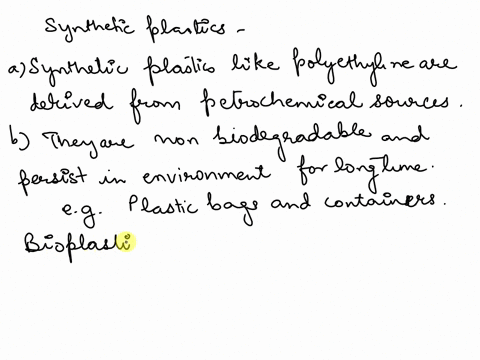 Synthetic plastics -
a) Synthetic plastics like polyethyline are
derived from petrochemical sources.
b) They are non biodegradable and
persist in environment for long time.
e.g. Plastic bags and containers.
Bioplasti